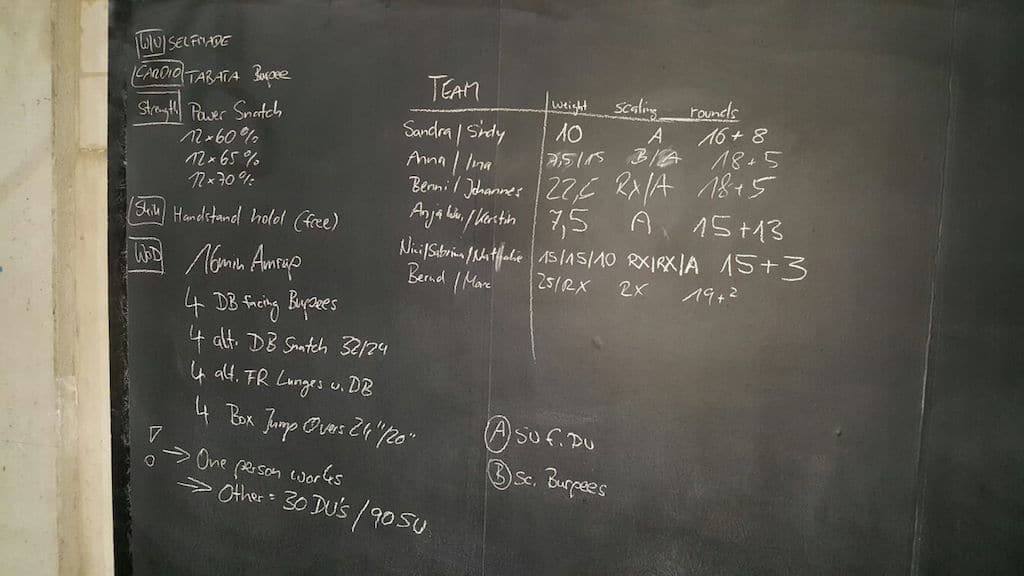 W/U SELFMADE
CARDIO TABATA Burpee
Strength Power Snatch
12x60%
12x65%
12x70%
Skill Handstand hold (free)
WOD
16min Amrap
4 DB facing Burpees
4 alt. DB Snatch 32/24
4 alt. FR Lunges w. DB
4 Box Jump Overs 24"/20"
! → One person works
→ Other = 30 DU's / 90 SU
TEAM weight scaling rounds
Sandra / Sindy 10 A 16+8
Anna / Ina 7,5/15 B/A 18+5
Benni / Johannes 22,5 RX/A 18+5
/ Kerstin 7,5 A 15+13
Nici/Sabrina/Nathalie 15/15/10 RX/RX/A 15+3
Bernd / Marc 25/RX RX 19+2
A SU f. DU
B Sc. Burpees